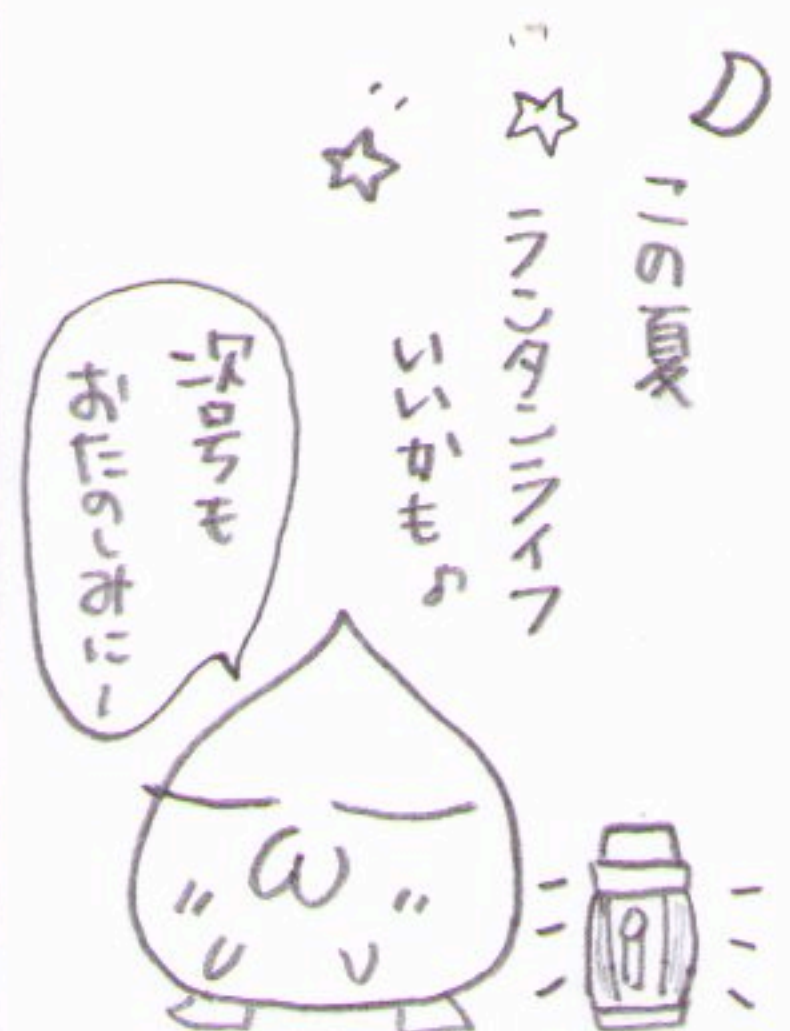 この夏
ランタンライフ
いいかも♪
次号も
おたのしみにー